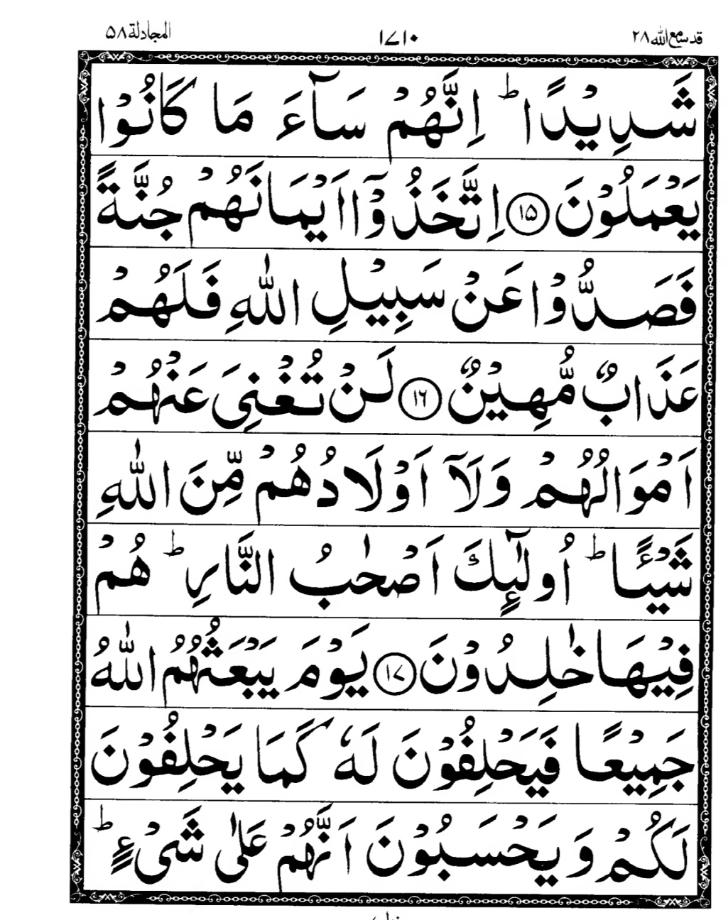 قد سمع الله ٢٨ ١٧١٠ المجادلة ٥٨
شَدِيْدًا ؕ اِنَّهُمْ سَآءَ مَا كَانُوْا
يَعْمَلُوْنَ ⑮ اِتَّخَذُوْۤا اَيْمَانَهُمْ جُنَّةً
فَصَدُّوْا عَنْ سَبِيْلِ اللّٰهِ فَلَهُمْ
عَذَابٌ مُّهِيْنٌ ⑯ لَنْ تُغْنِیَ عَنْهُمْ
اَمْوَالُهُمْ وَلَاۤ اَوْلَادُهُمْ مِّنَ اللّٰهِ
شَيْـًٔا ؕ اُولٰٓئِكَ اَصْحٰبُ النَّارِ ؕ هُمْ
فِيْهَا خٰلِدُوْنَ ⑰ يَوْمَ يَبْعَثُهُمُ اللّٰهُ
جَمِيْعًا فَيَحْلِفُوْنَ لَهٗ كَمَا يَحْلِفُوْنَ
لَكُمْ وَيَحْسَبُوْنَ اَنَّهُمْ عَلٰی شَیْءٍ ؕ